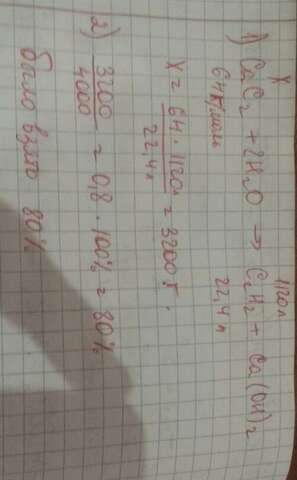 x 1120л
1) CaC₂ + 2H₂O → C₂H₂ + Ca(OH)₂
64г/моль 22,4л
x = 64 · 1120л / 22,4л = 3200г.
2) 3200/4000 = 0,8 · 100% = 80%
было взято 80%